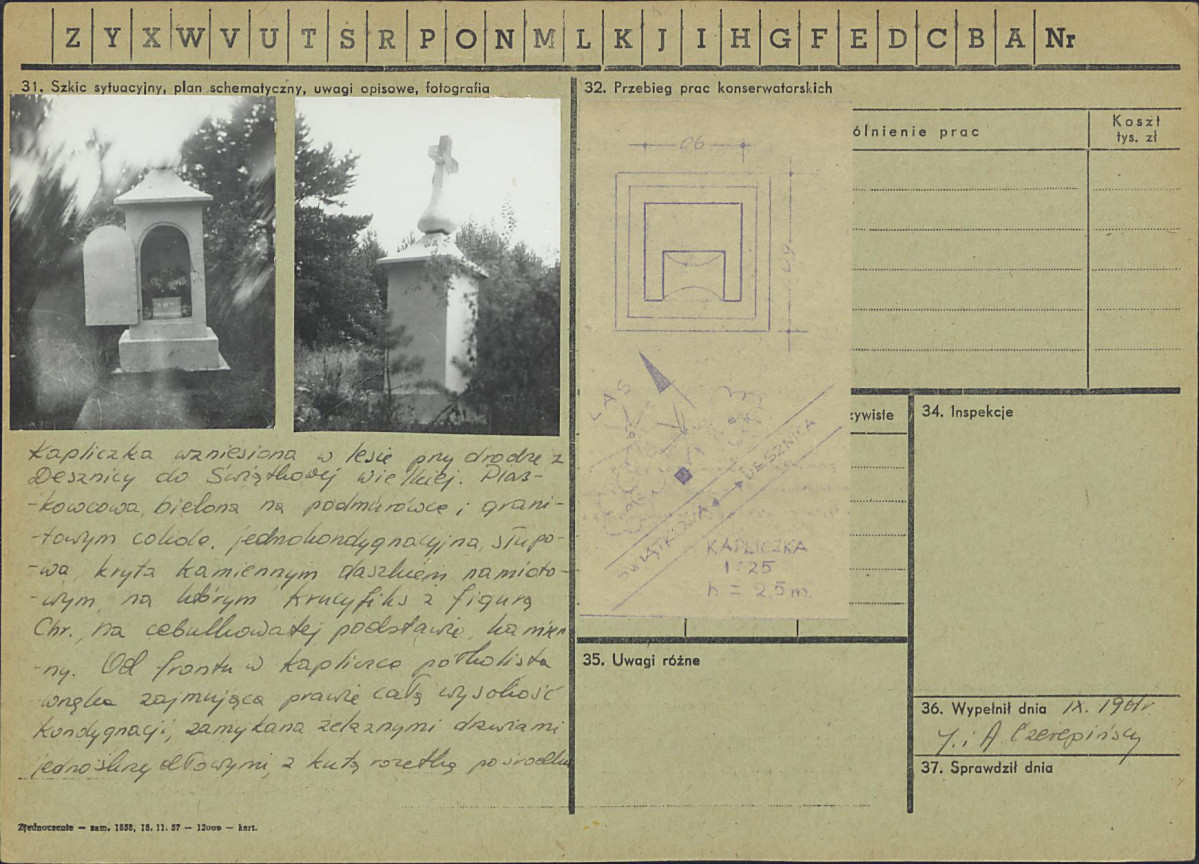 Z Y X W V U T S R P O N M L K J I H G F E D C B A Nr
31. Szkic sytuacyjny, plan schematyczny, uwagi opisowe, fotografia
Kapliczka wzniesiona w lesie przy drodze z
Desznicy do Świątkowej Wielkiej. Pias-
-kowcowa, bielona na podmurówce i grani-
-towym cokole, jednokondygnacyjna, słupo-
-wa, kryta kamiennym daszkiem namioto-
-wym, na którym krucyfiks z figurą
Chr., na cebulkowatej podstawie, kamien
-ny. Od frontu w kapliczce półkolista
wnęka zajmująca prawie całą wysokość
kondygnacji, zamykana żelaznymi drzwiami
jednoskrzydłowymi, z kutą rozetką pośrodku
Zjednoczenie — zam. 1858, 18. 11. 57 — 12000 — kart.
32. Przebieg prac konserwatorskich
ólnienie prac
Koszt
tys. zł
90
LAS
ŚWIĄTKOWA
DESZNICA
KAPLICZKA
1:25
h = 2,5 m.
zywiste
34. Inspekcje
35. Uwagi różne
36. Wypełnił dnia IX.
J. i A. Czerepińscy
37. Sprawdził dnia